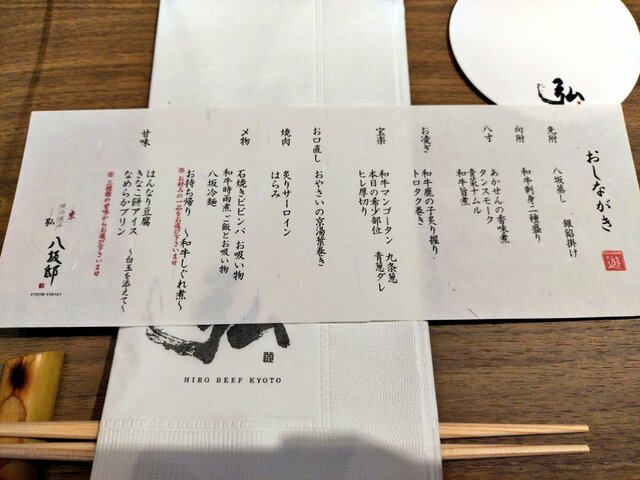 おしながき
遊
先附
八坂蒸し 銀餡掛け
向附
和牛刺身二種盛り
八寸
あかせんの香味煮
タンスモーク
青菜ナムル
和牛旨煮
お凌ぎ
和牛鹿の子炙り握り
トロタク巻き
宝楽
和牛マンゴータン 九条葱
本日の希少部位 青葱ダレ
ヒレ厚切り
お口直し
おやさいの京湯葉巻き
焼肉
炙りサーロイン
はらみ
〆物
石焼きビビンバ お吸い物
和牛時雨煮ご飯とお吸い物
八坂冷麺
お持ち帰り 〜和牛しぐれ煮〜
※お好みの一品をお選び下さいませ
甘味
はんなり豆腐
きなこ餅アイス 〜白玉を添えて〜
なめらかプリン
※三種類の甘味からお選び下さいませ
弘 八坂邸
KYOTO YASAKA
弘
HIRO BEEF KYOTO
弘